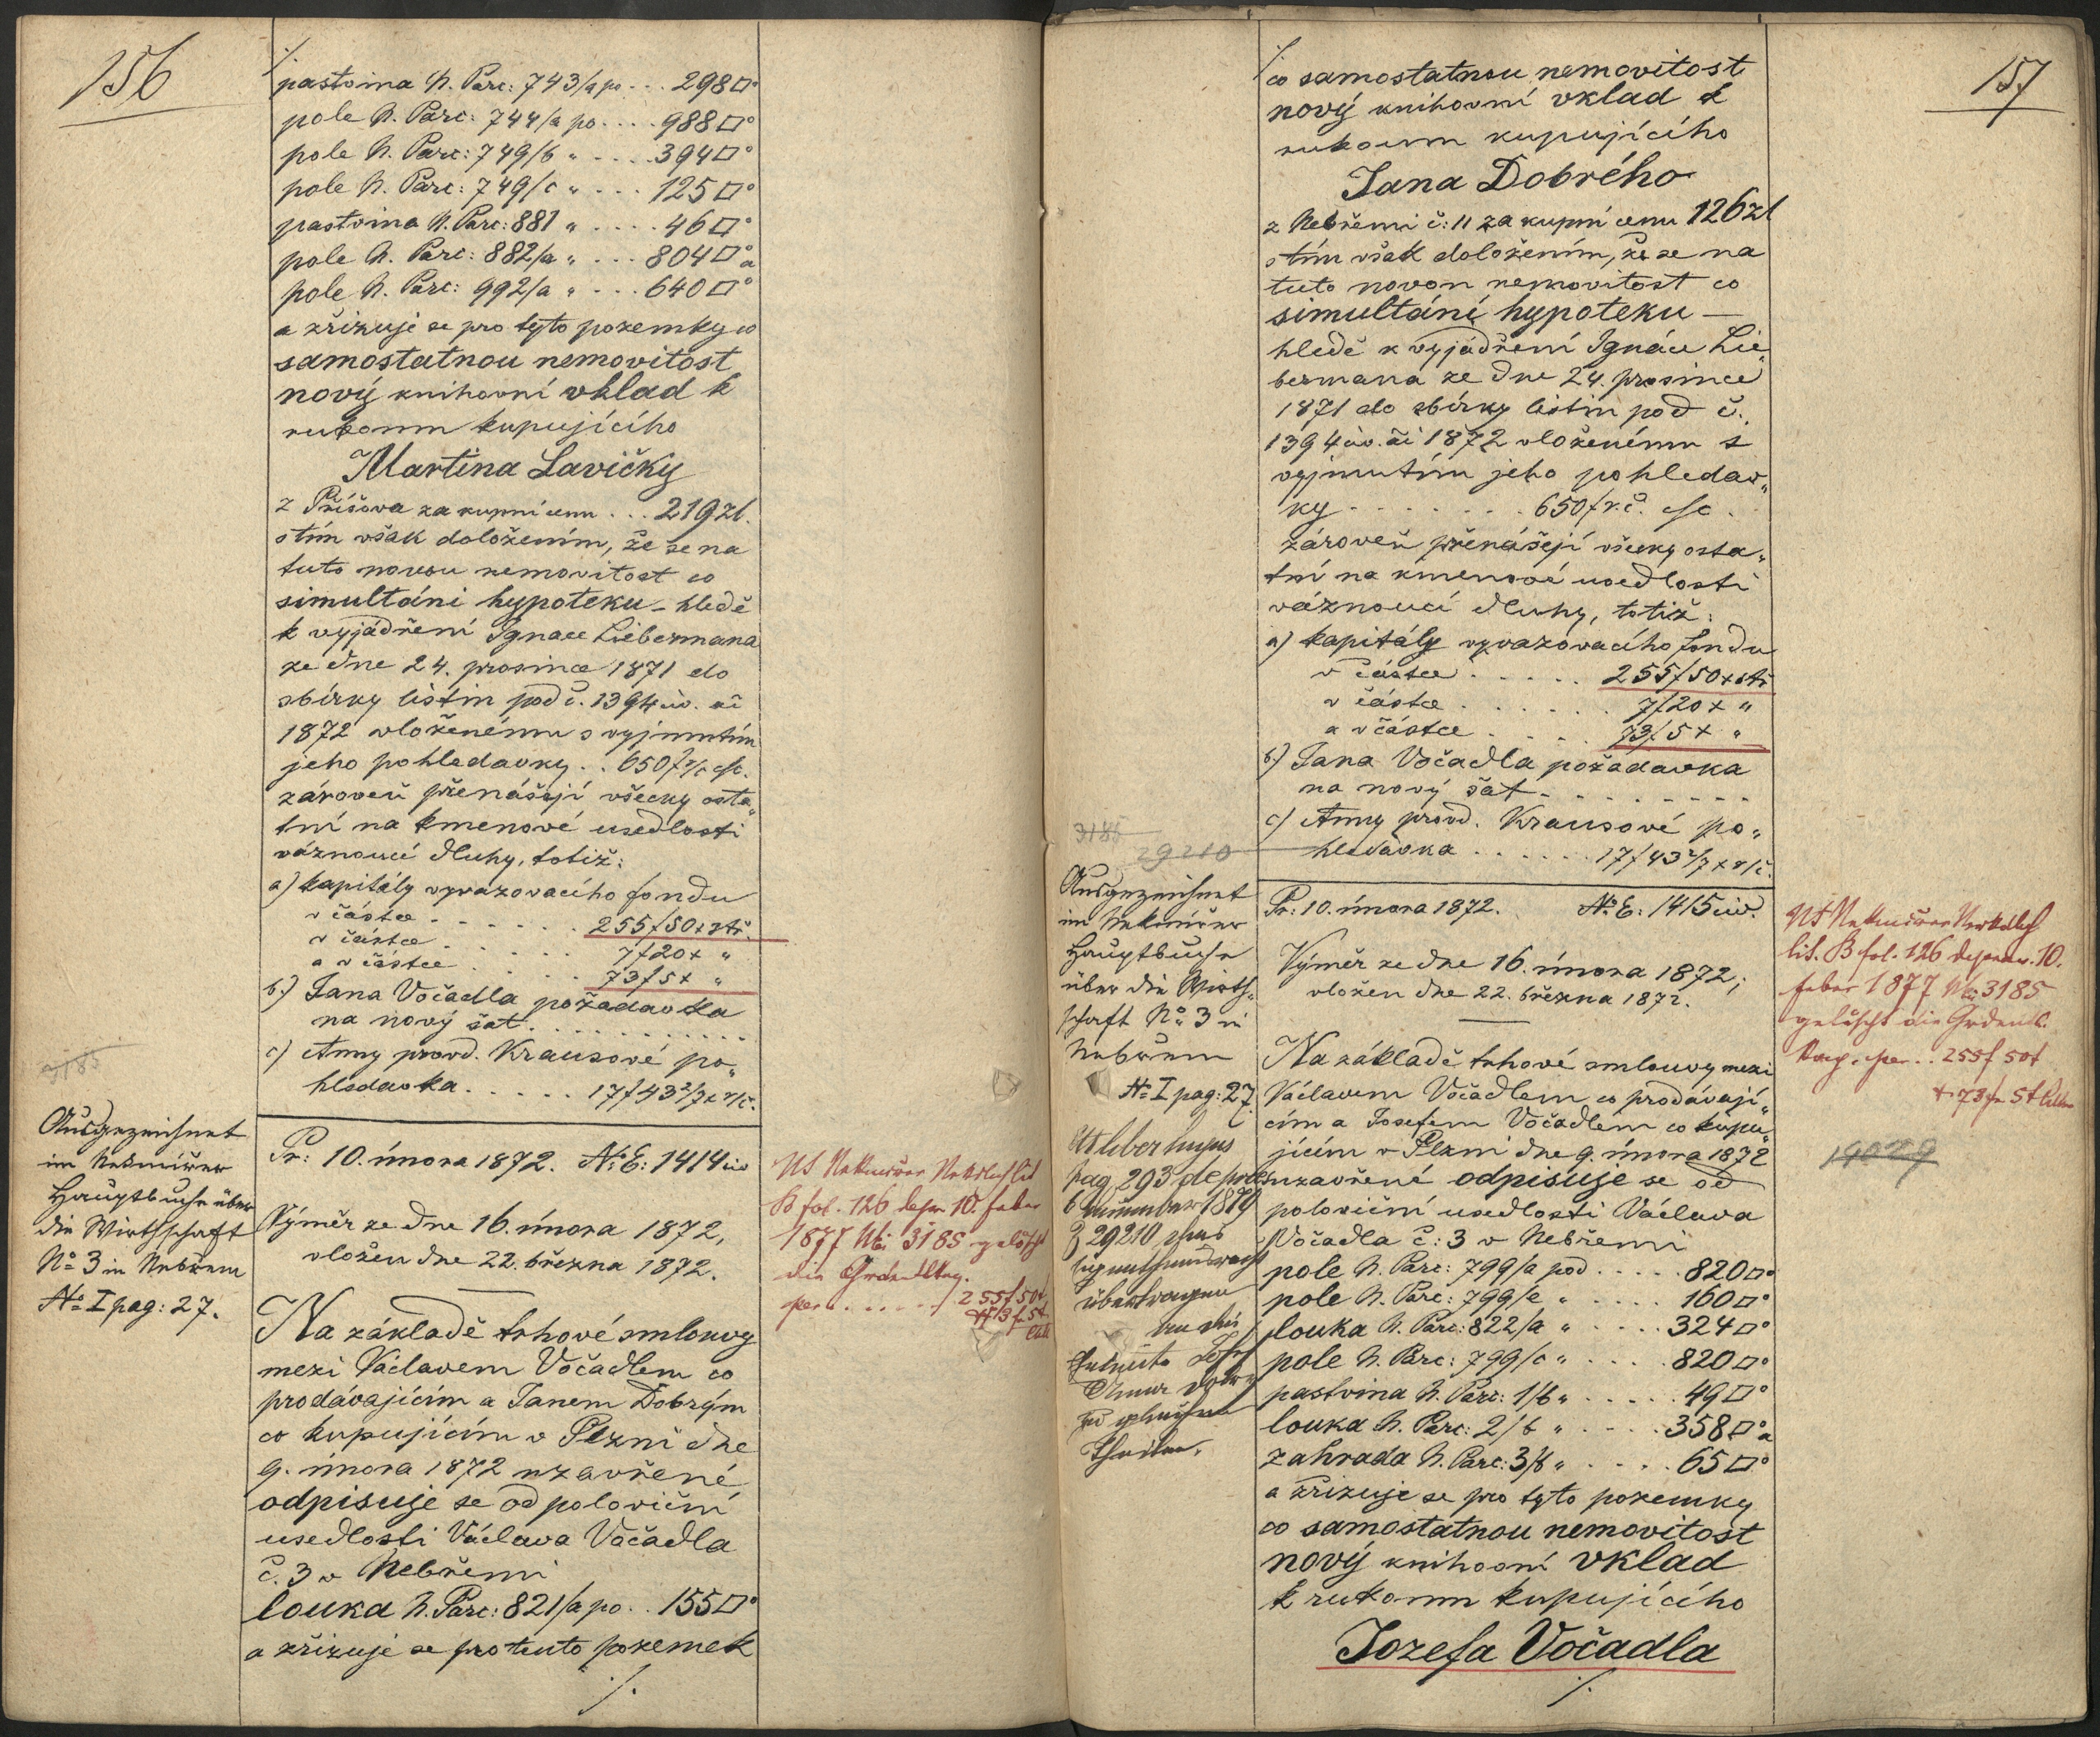 156
./.
pastvina N. Parc: 743/a po ... 298□°
pole N. Parc: 744/a po .... 988□°
pole N. Parc: 749/b " .... 394□°
pole N. Parc: 749/c " .... 125□°
pastvina N. Parc: 881 " .... 46□°
pole N. Parc: 882/a " ... 804□° a
pole N. Parc: 992/a " ... 640□°
a zřizuje se pro tyto pozemky co
samostatnou nemovitost
nový knihovní vklad k
rukoum kupujícího
Martina Lavičky
z Příšova za kupní cenu ... 219 zl.
s tím však doložením, že se na
tuto novou nemovitost co
simultání hypoteku – hledě
k vyjádření Ignace Liebermana
ze dne 24. prosince 1871 do
sbírky listin pod č. 1394 civ. ai
1872 vloženému s vyjmutím
jeho pohledavky .. 650 f r/č csc.
zároveň přenášejí všecky osta„
tní na kmenové usedlosti
váznoucí dluhy, totiž:
a) kapitály vyvazovacího fondu
v částce ...... 255 f 50 x stř.
v částce ...... 7 f 20 x "
a v částce ..... 73 f 5 x "
b.) Jana Vočadla požadavka
na nový šat ..........
c) Anny provd. Krausové po„
hledavka ..... 17 f 43 2/7 x r/č.
3185
Ausgezeichnet
im Nekmiřer
Hauptbuche über
die Wirthschaft
No 3 in Nebřem
No I pag: 27.
Pr: 10. února 1872. No E: 1414 civ
Výměr ze dne 16. února 1872,
vložen dne 22. března 1872.
Na základě trhové smlouvy
mezi Václavem Vočadlem co
prodávajícím a Janem Dobrým
co kupujícím v Plzni dne
9. února 1872 uzavřené
odpisuje se od poloviční
usedlosti Václava Vočadla
č. 3 v Nebřemi
louka N. Parc: 821/a po .. 155□°
a zřizuje se pro tento pozemek
./.
B fol. 126 10. feber
1877 3185 gelöscht
die
per ...... 255 f 50 x
73 f 5 x
157
./.
co samostatnou nemovitost
nový knihovní vklad k
rukoum kupujícího
Jana Dobrého
z Nebřemi č: 11 za kupní cenu 126 zl
s tím však doložením, že se na
tuto novou nemovitost co
simultání hypoteku –
hledě k vyjádření Ignáce Lie„
bermana ze dne 24. prosince
1871 do sbírky listin pod č.
1394 civ. ai 1872 vloženému s
vyjmutím jeho pohledav„
ky ....... 650 f r.č. csc.
zároveň přenášejí všecky osta„
tní na kmenové usedlosti
váznoucí dluhy, totiž:
a) kapitály vyvazovacího fondu
v částce ..... 255 f 50 x stř
v částce ...... 7 f 20 x "
a v částce .... 73 f 5 x "
b) Jana Vočadla požadavka
na nový šat ........
c) Anny provd. Krausové po„
hledavka ...... 17 f 43 2/7 x r/č.
3185
29210
Ausgezeichnet
im Nekmiřer
Hauptbuche
über die Wirth„
schaft No 3 in
Nebřem
No I pag: 27.
pag 293 de praes
1879
29210
übertragen
Theilen.
Pr: 10. února 1872. No E: 1415 civ.
Výměr ze dne 16. února 1872;
vložen dne 22. března 1872.
Na základě trhové smlouvy mezi
Václavem Vočadlem co prodávají„
cím a Josefem Vočadlem co kupu„
jícím v Plzni dne 9. února 1872
uzavřené odpisuje se od
poloviční usedlosti Václava
Vočadla č: 3 v Nebřemi
pole N. Parc: 799/a pod ..... 820□°
pole N. Parc: 799/e " .... 160□°
louka N. Parc: 822/a " .... 324□°
pole N. Parc: 799/c " .... 820□°
pastvina N. Parc: 1/b " ..... 49□°
louka N. Parc: 2/b " .... 358□° a
zahrada N. Parc: 3/b " .... 65□°
a zřizuje se pro tyto pozemky
co samostatnou nemovitost
nový knihovní vklad
k rukoum kupujícího
Jozefa Vočadla
./.
lit. B fol. 126 10.
feber 1877 3185
gelöscht die
per .. 255 f 50 x
+ 73 f 5 x
19029